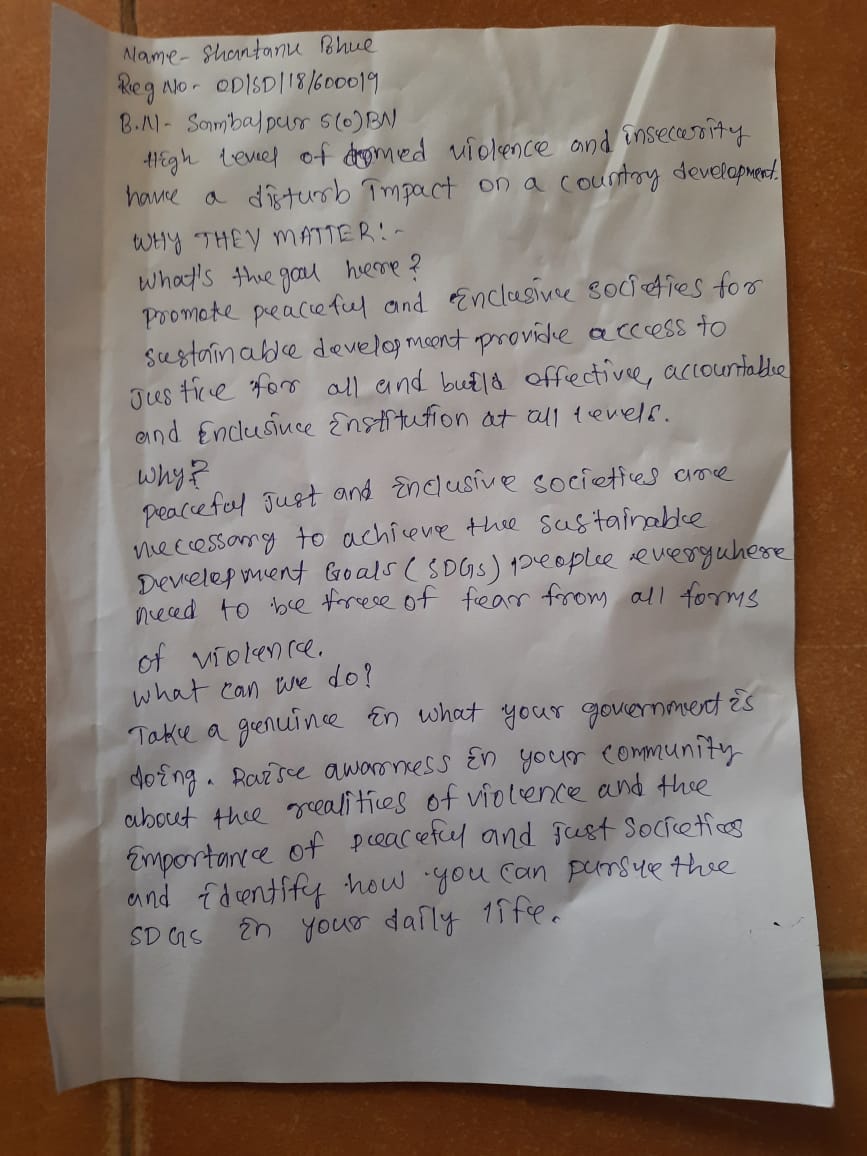 Name- Shantanu Bhue
Reg No- OD/SD/18/600019
B.N- Sambalpur 5(O)BN
High level of armed violence and insecurity
have a disturb impact on a country development.
WHY THEY MATTER!-
What's the goal here?
Promote peaceful and inclusive societies for
sustainable development provide access to
Justice for all and build effective, accountable
and inclusive institution at all levels.
Why?
Peaceful Just and inclusive societies are
neccessary to achieve the sustainable
Development Goals (SDGs) People everywhere
need to be free of fear from all forms
of violence.
What can we do?
Take a genuine in what your government is
doing. Raise awarness in your community
about the realities of violence and the
importance of peaceful and just Societies
and identify how you can pursue the
SDGs in your daily life.